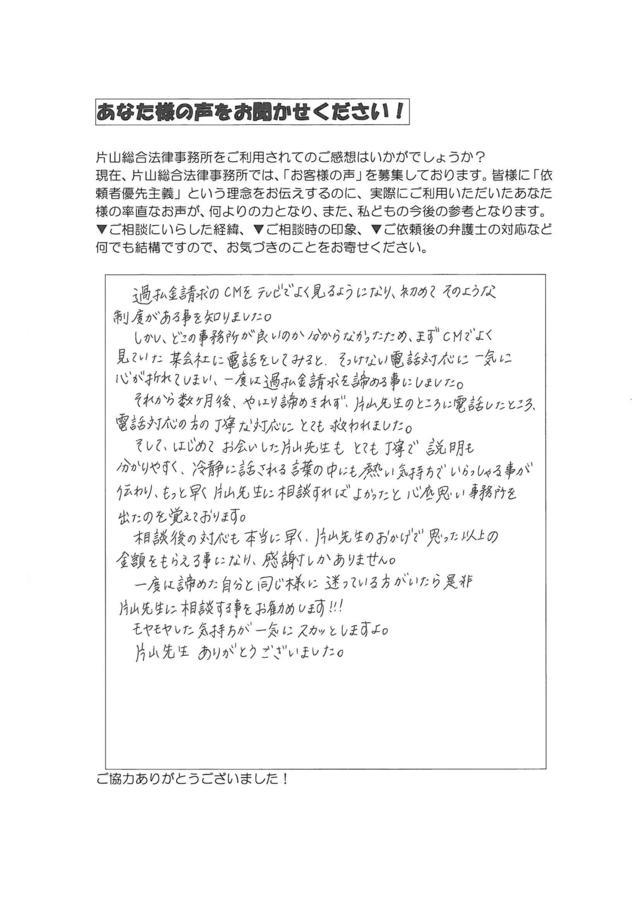 あなた様の声をお聞かせください！
片山総合法律事務所をご利用されてのご感想はいかがでしょうか？
現在、片山総合法律事務所では、「お客様の声」を募集しております。皆様に「依
頼者優先主義」という理念をお伝えするのに、実際にご利用いただいたあなた
様の率直なお声が、何よりの力となり、また、私どもの今後の参考となります。
▼ご相談にいらした経緯、▼ご相談時の印象、▼ご依頼後の弁護士の対応など
何でも結構ですので、お気づきのことをお寄せください。
過払金請求のCMをテレビでよく見るようになり、初めてそのような
制度がある事を知りました。
しかし、どこの事務所が良いのか分からなかったため、まずCMでよく
見ていた某会社に電話をしてみると、そっけない電話対応に一気に
心が折れてしまい、一度は過払金請求を諦める事にしました。
それから数ヶ月後、やはり諦めきれず、片山先生のところに電話したところ、
電話対応の方の丁寧な対応にとても救われました。
そして、はじめてお会いした片山先生もとても丁寧で説明も
分かりやすく、冷静に話される言葉の中にも熱い気持ちでいらっしゃる事が
伝わり、もっと早く片山先生に相談すればよかったと心底思い事務所を
出たのを覚えております。
相談後の対応も本当に早く、片山先生のおかげで思った以上の
金額をもらえる事になり、感謝しかありません。
一度は諦めた自分と同じ様に迷っている方がいたら是非
片山先生に相談する事をお勧めします!!!
モヤモヤした気持ちが一気にスカッとしますよ。
片山先生 ありがとうございました。
ご協力ありがとうございました！